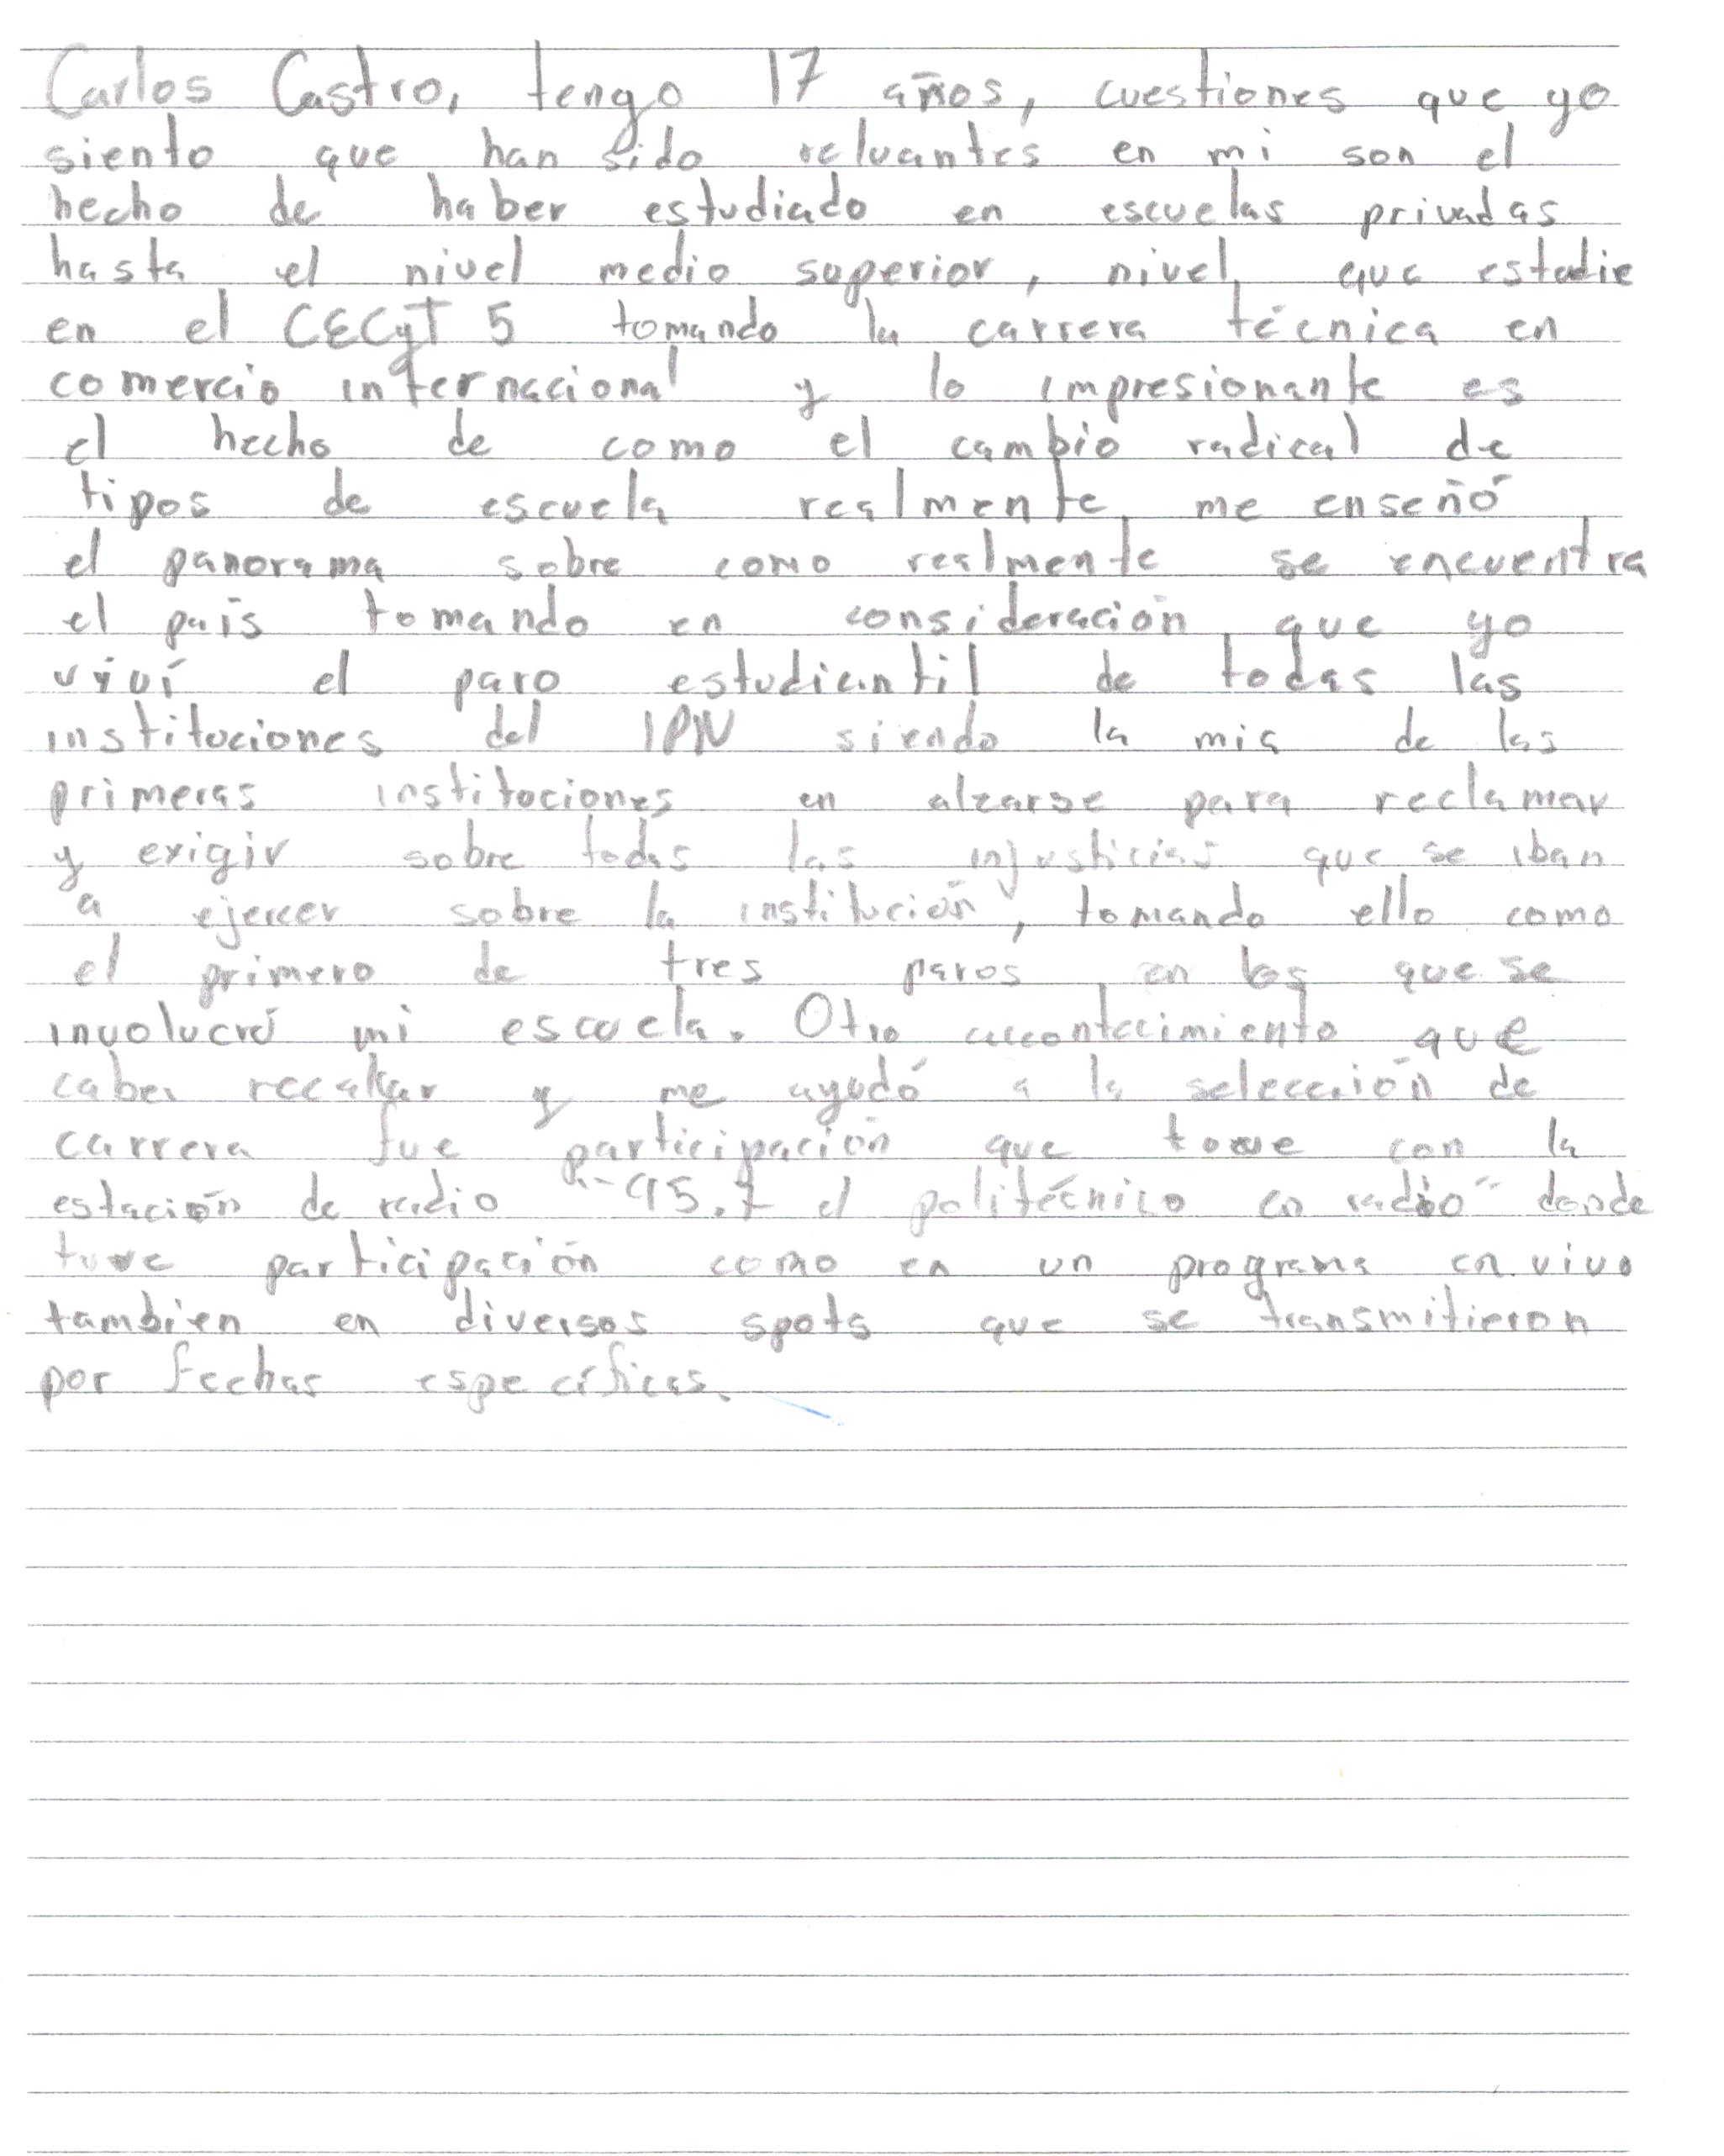 Carlos Castro, tengo 17 años, cuestiones que yo
siento que han sido reluantes en mi son el
hecho de haber estudiado en escuelas privadas
hasta el nivel medio superior, nivel que estudie
en el CECyT 5 tomando la carrera técnica en
comercio internacional y lo impresionante es
el hecho de como el cambio radical de
tipos de escuela realmente me enseñó
el panorama sobre como realmente se encuentra
el país tomando en consideración que yo
viví el paro estudiantil de todas las
instituciones del IPN siendo la mia de las
primeras instituciones en alzarse para reclamar
y exigir sobre todas las injusticias que se iban
a ejercer sobre la institución, tomando ello como
el primero de tres paros en los que se
involucró mi escuela. Otro acontecimiento que
caber recalcar y me ayudó a la selección de
carrera fue participación que tove con la
estación de radio "95.7 el politécnico en radio" donde
tuve participación como en un programa en vivo
tambien en diversos spots que se transmitieron
por fechas específicas.